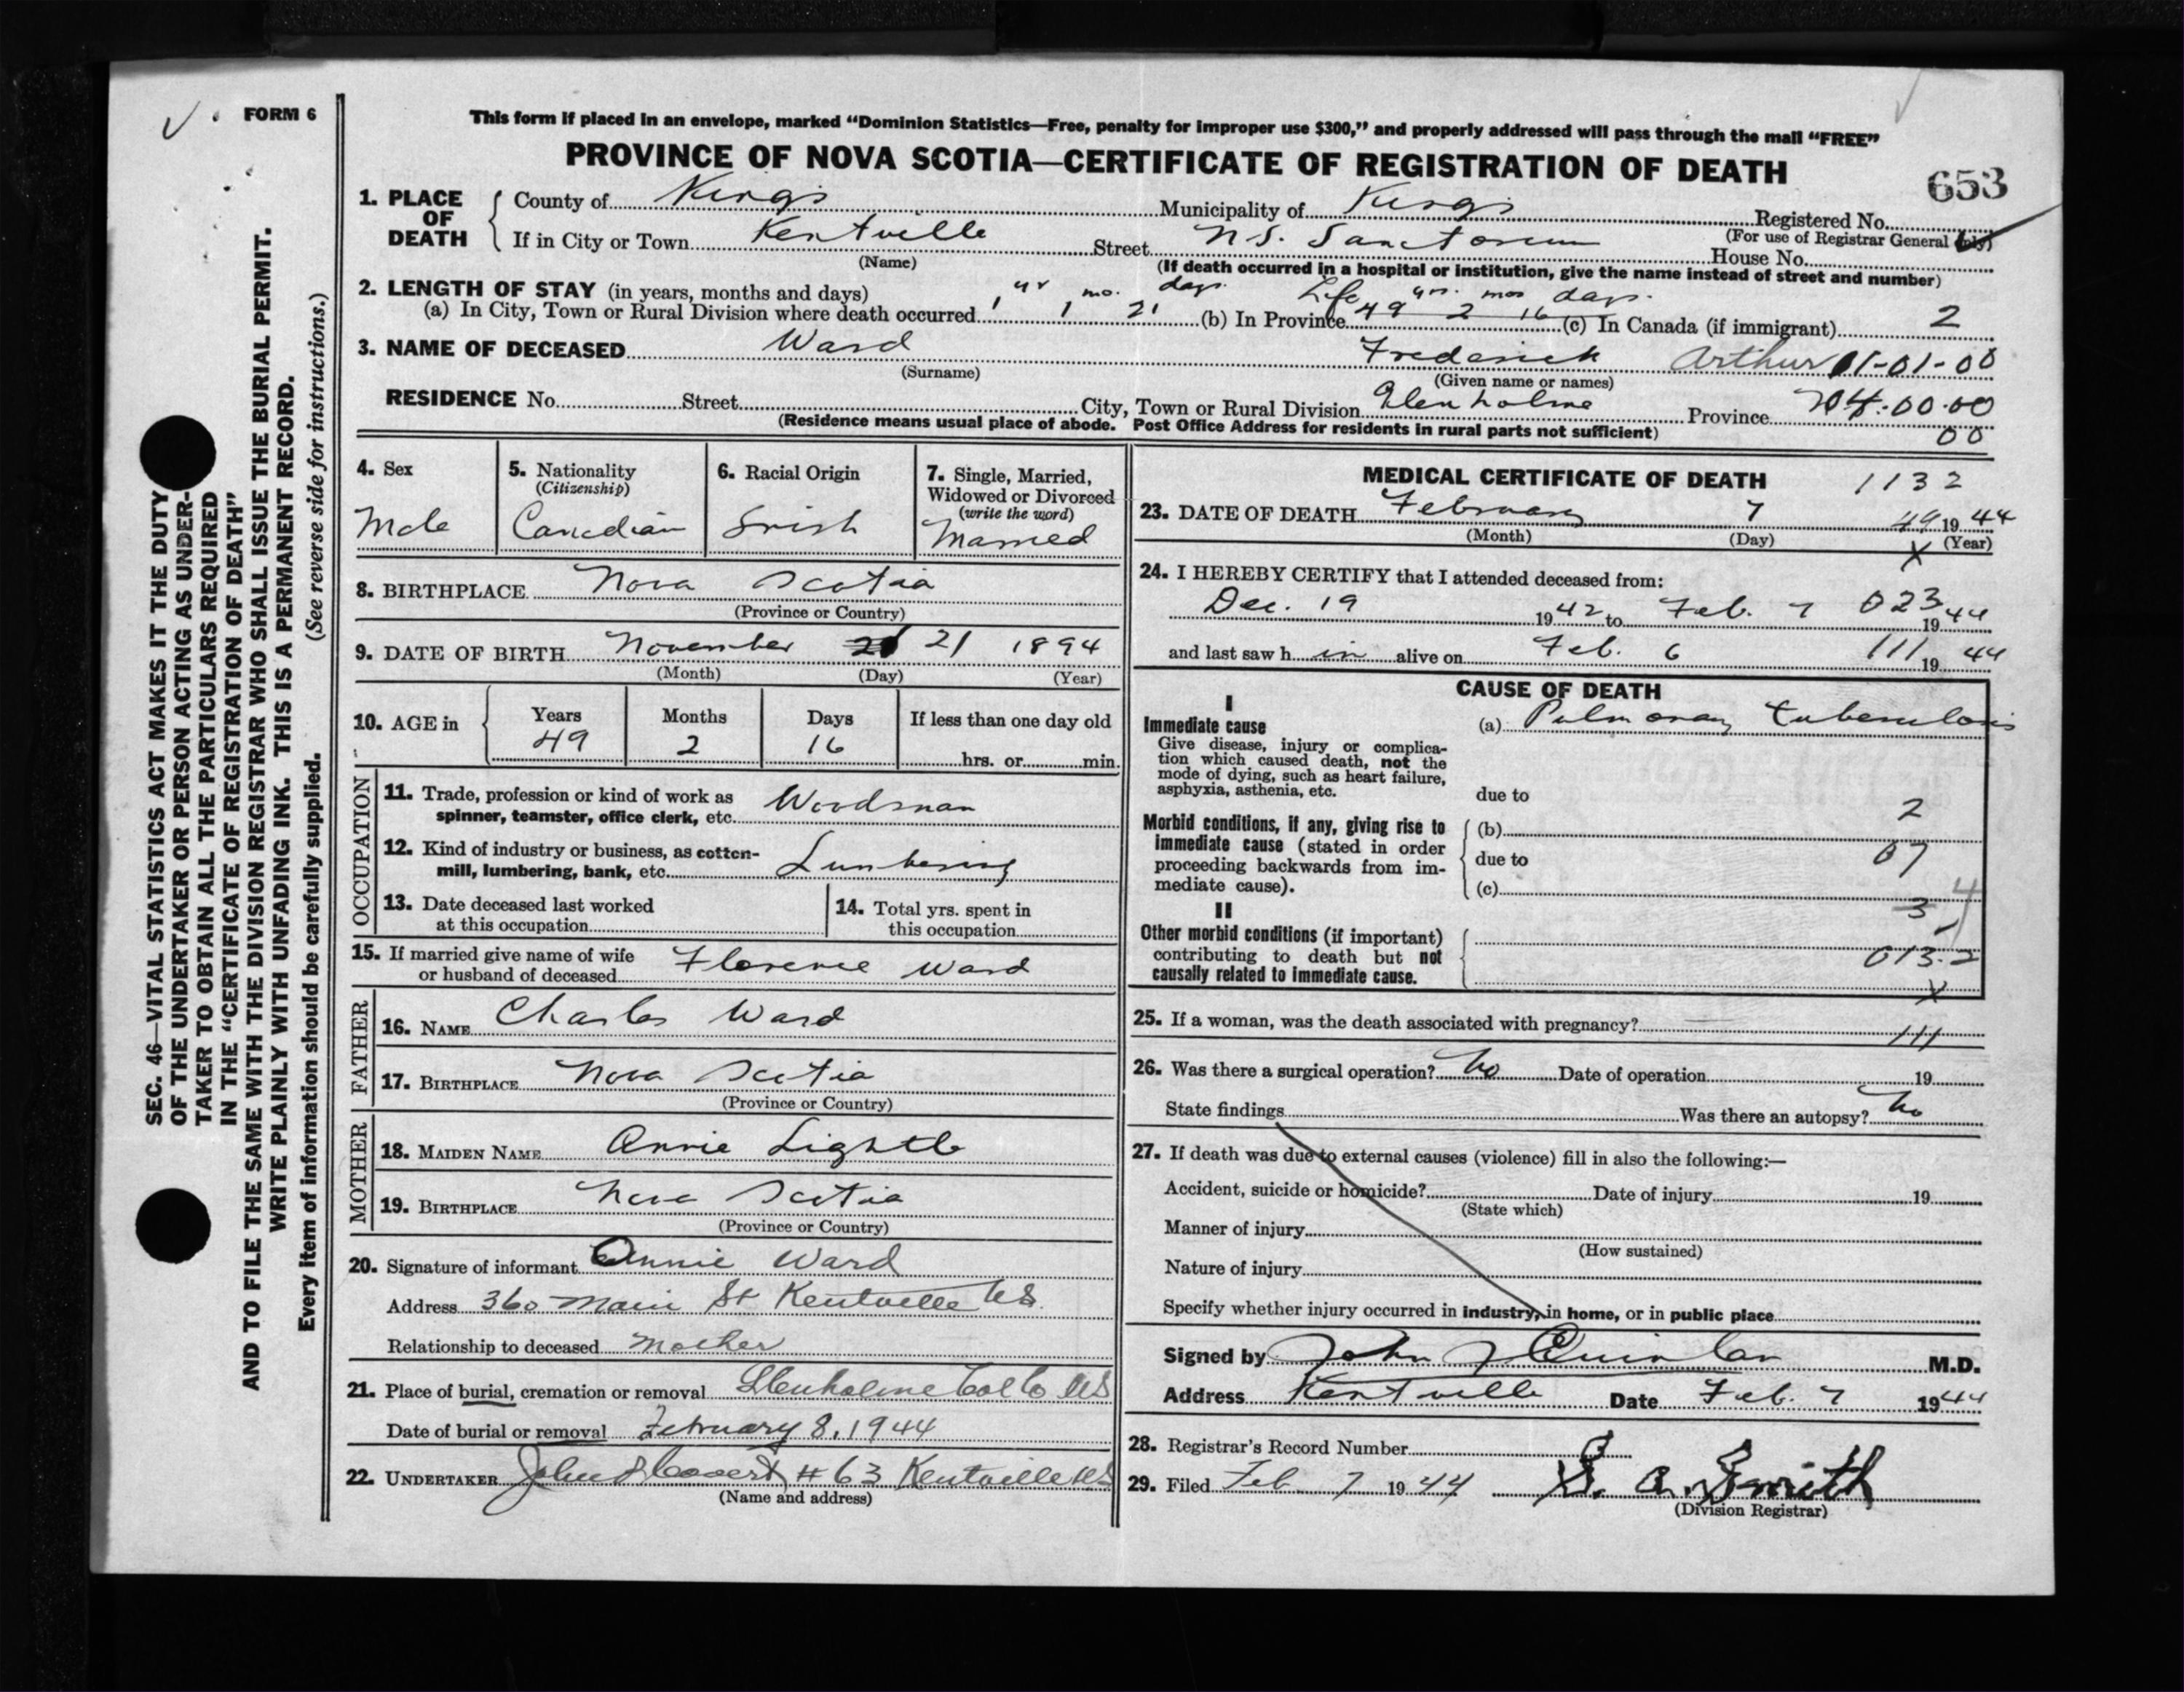 FORM 6
This form if placed in an envelope, marked “Dominion Statistics—Free, penalty for improper use $300,” and properly addressed will pass through the mail “FREE”
PROVINCE OF NOVA SCOTIA—CERTIFICATE OF REGISTRATION OF DEATH
653
1. PLACE OF DEATH
County of Kings Municipality of Kings Registered No.
(For use of Registrar General only)
If in City or Town Kentville Street N.S. Sanatorium House No.
(Name) (If death occurred in a hospital or institution, give the name instead of street and number)
2. LENGTH OF STAY (in years, months and days)
yr mo. days Life yrs. mos days.
(a) In City, Town or Rural Division where death occurred 1 1 21 (b) In Province 49 2 16 (c) In Canada (if immigrant) 2
3. NAME OF DECEASED Ward Frederick Arthur 01-01-00
(Surname) (Given name or names)
RESIDENCE No. Street City, Town or Rural Division Glenholme Province 04-00-00
(Residence means usual place of abode. Post Office Address for residents in rural parts not sufficient)
00
4. Sex Male
5. Nationality (Citizenship) Canadian
6. Racial Origin Irish
7. Single, Married, Widowed or Divorced (write the word) Married
8. BIRTHPLACE Nova Scotia
(Province or Country)
9. DATE OF BIRTH November 21 1894
(Month) (Day) (Year)
10. AGE in Years Months Days If less than one day old
49 2 16 hrs. or min.
OCCUPATION
11. Trade, profession or kind of work as
spinner, teamster, office clerk, etc. Woodsman
12. Kind of industry or business, as cotten-
mill, lumbering, bank, etc. Lumbering
13. Date deceased last worked
at this occupation
14. Total yrs. spent in
this occupation
15. If married give name of wife
or husband of deceased Florence Ward
FATHER
16. NAME Charles Ward
17. BIRTHPLACE Nova Scotia
(Province or Country)
MOTHER
18. MAIDEN NAME Annie Lightle
19. BIRTHPLACE Nova Scotia
(Province or Country)
20. Signature of informant Annie Ward
Address 360 Main St Kentville NS.
Relationship to deceased Mother
21. Place of burial, cremation or removal Glenholme Col Co NS
Date of burial or removal February 8, 1944
22. UNDERTAKER John # 63 Kentville NS
(Name and address)
MEDICAL CERTIFICATE OF DEATH
1132
23. DATE OF DEATH February 7 49 1944
(Month) (Day) X (Year)
24. I HEREBY CERTIFY that I attended deceased from:
Dec. 19 1942 to Feb. 7 023 1944
and last saw h im alive on Feb. 6 111 1944
CAUSE OF DEATH
I
Immediate cause
Give disease, injury or complica-
tion which caused death, not the
mode of dying, such as heart failure,
asphyxia, asthenia, etc.
(a) Pulmonary tuberculosis
due to
2
Morbid conditions, if any, giving rise to
immediate cause (stated in order
proceeding backwards from im-
mediate cause).
(b)
due to
07
(c)
4
3
II
Other morbid conditions (if important)
contributing to death but not
causally related to immediate cause.
013.2
X
25. If a woman, was the death associated with pregnancy?
111
26. Was there a surgical operation? No Date of operation 19
State findings Was there an autopsy? No
27. If death was due to external causes (violence) fill in also the following:—
Accident, suicide or homicide? Date of injury 19
(State which)
Manner of injury
(How sustained)
Nature of injury
Specify whether injury occurred in industry, in home, or in public place
Signed by John J Quinlan M.D.
Address Kentville Date Feb. 7 1944
28. Registrar's Record Number
29. Filed Feb 7 1944 S. A. Smith
(Division Registrar)
SEC. 46—VITAL STATISTICS ACT MAKES IT THE DUTY
OF THE UNDERTAKER OR PERSON ACTING AS UNDER-
TAKER TO OBTAIN ALL THE PARTICULARS REQUIRED
IN THE “CERTIFICATE OF REGISTRATION OF DEATH”
AND TO FILE THE SAME WITH THE DIVISION REGISTRAR WHO SHALL ISSUE THE BURIAL PERMIT.
WRITE PLAINLY WITH UNFADING INK. THIS IS A PERMANENT RECORD.
Every item of information should be carefully supplied. (See reverse side for instructions.)